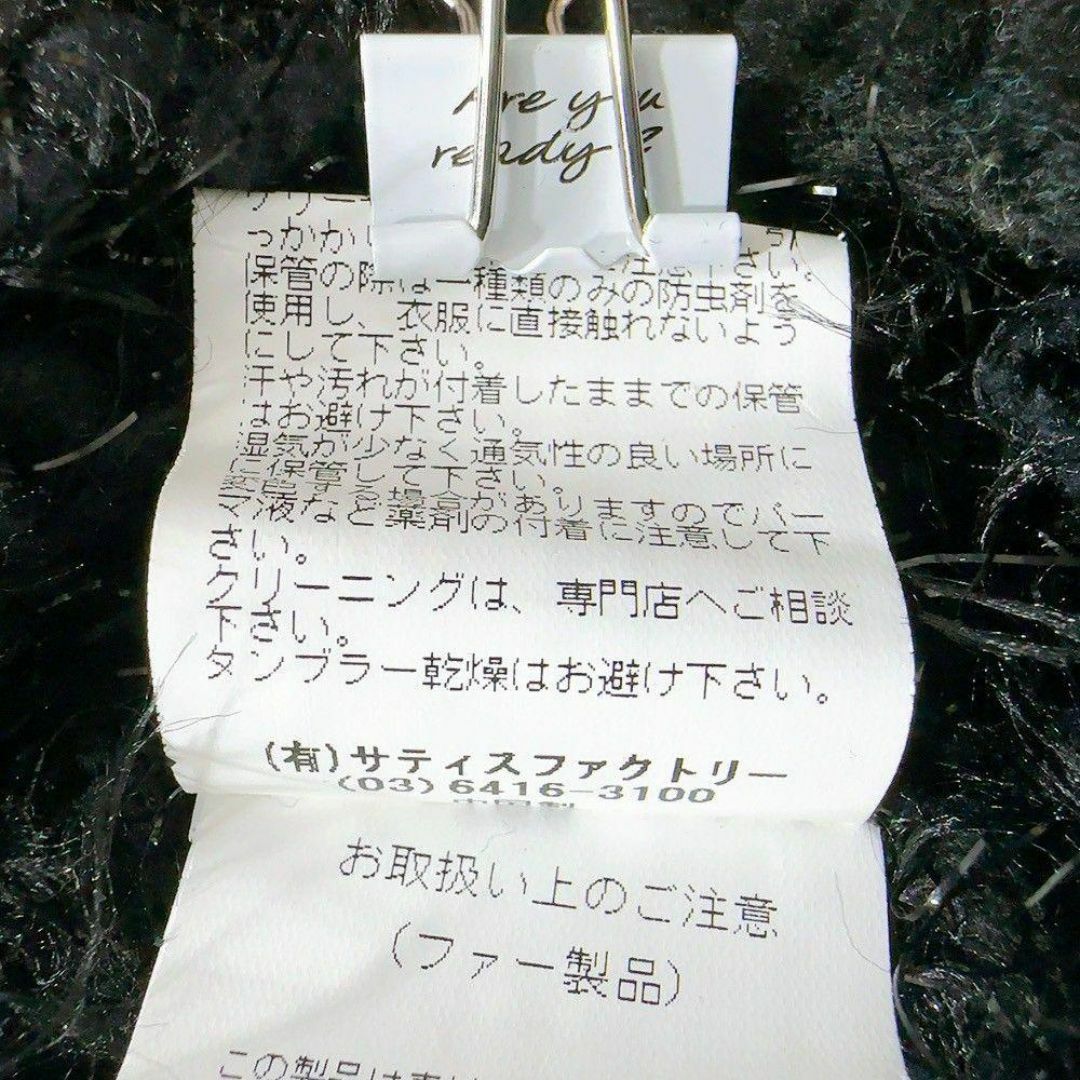 Are you
ready?
っかか
注意下さい。
保管の際は一種類のみの防虫剤を
使用し、衣服に直接触れないよう
にして下さい。
汗や汚れが付着したままでの保管
はお避け下さい。
湿気が少なく通気性の良い場所に
に保管して下さい。
変色する場合がありますのでパー
マ液など薬剤の付着に注意して下
さい。
クリーニングは、専門店へご相談
下さい。
タンブラー乾燥はお避け下さい。
(有)サティスファクトリー
(03)6416-3100
中国製
お取扱い上のご注意
(ファー製品)
この製品は素材